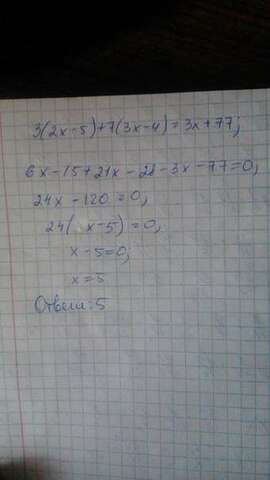 3(2x-5)+7(3x-4)=3x+77;
6x-15+21x-28-3x-77=0,
24x-120=0,
24(x-5)=0,
x-5=0,
x=5
Ответ: 5